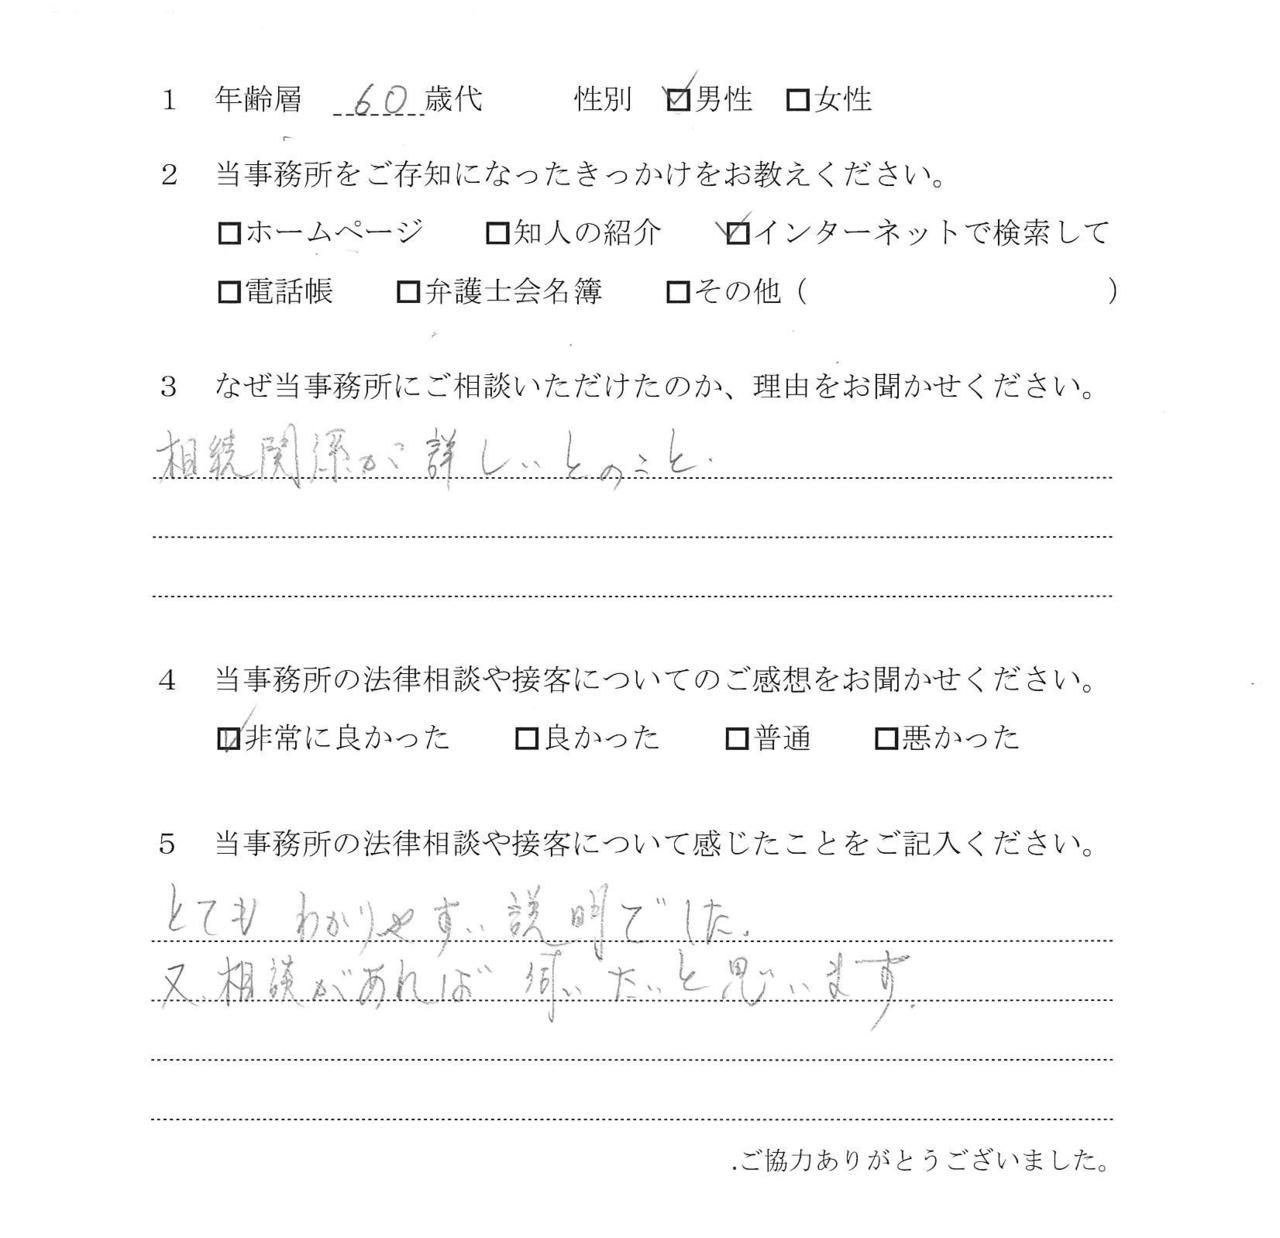 1 年齢層 60歳代 性別 ☑男性 □女性
2 当事務所をご存知になったきっかけをお教えください。
□ホームページ □知人の紹介 ☑インターネットで検索して
□電話帳 □弁護士会名簿 □その他（ ）
3 なぜ当事務所にご相談いただけたのか、理由をお聞かせください。
相続関係が詳しいとのこと.
4 当事務所の法律相談や接客についてのご感想をお聞かせください。
☑非常に良かった □良かった □普通 □悪かった
5 当事務所の法律相談や接客について感じたことをご記入ください。
とても わかりやすい説明でした.
又、相談があれば 伺いたいと思います.
.ご協力ありがとうございました。